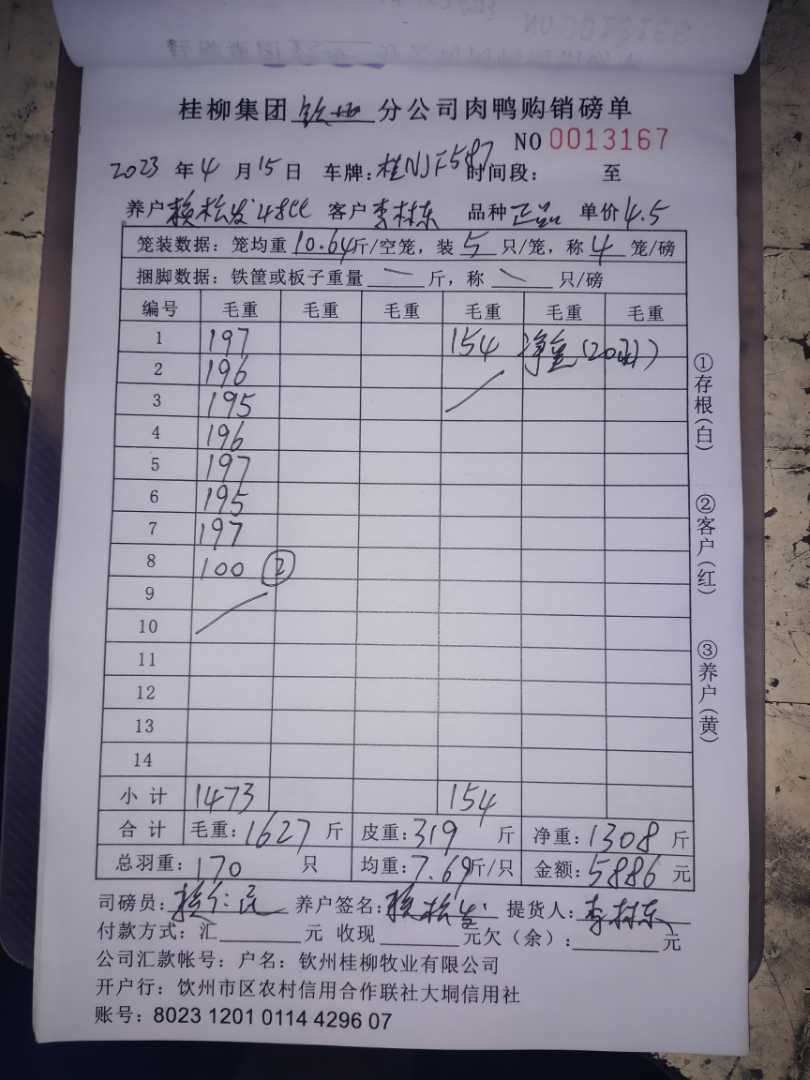 桂柳集团 钦州 分公司肉鸭购销磅单
NO 0013167
2023 年 4 月 15 日 车牌:桂NJF587 时间段: 至
养户 赖松发 客户 李村东 品种 正品 单价 4.5
笼装数据: 笼均重 10.64 斤/空笼, 装 5 只/笼, 称 4 笼/磅
捆脚数据: 铁筐或板子重量 斤, 称 只/磅
编号 毛重 毛重 毛重 毛重 毛重 毛重
1 197 154 净重(20只)
2 196
3 195
4 196
5 197
6 195
7 197
8 100 ②
9
10
11
12
13
14
小计 1473 154
合计 毛重:1627 斤 皮重:319 斤 净重:1308 斤
总羽重:170 只 均重:7.69 斤/只 金额:5886 元
司磅员: 养户签名:赖松发 提货人:李村东
付款方式: 汇 元 收现 元欠(余): 元
公司汇款帐号: 户名: 钦州桂柳牧业有限公司
开户行: 钦州市区农村信用合作联社大垌信用社
账号: 8023 1201 0114 4296 07
①存根(白)
②客户(红)
③养户(黄)